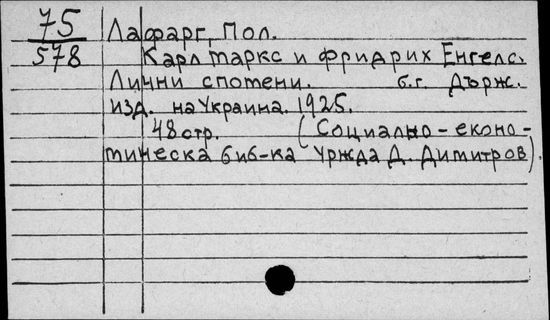 75
578
Лафарг, Пол.
Карл Маркс и Фридрих Енгелс.
Лични спомени. б.г. Държ.
изд. на Украина. 1925.
48 стр. (Социално-еконо-
мическа биб-ка Уржда Д. Димитров).